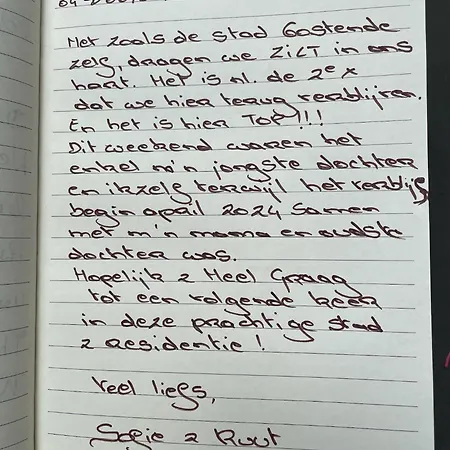 Net zoals de stad Oostende
zelf, dragen we ZILT in ons
hart. Het is nl. de 2e x
dat we hier terug verblijven.
En het is hier TOP!!!
Dit weekend waren het
enkel m'n jongste dochter
en ikzelf terwijl het verblijf
begin april 2024 samen
met m'n mama en oudste
dochter was.
Hopelijk & Heel Graag
tot een volgende keer
in deze prachtige stad
& residentie!
Veel liefs,
Sofie &